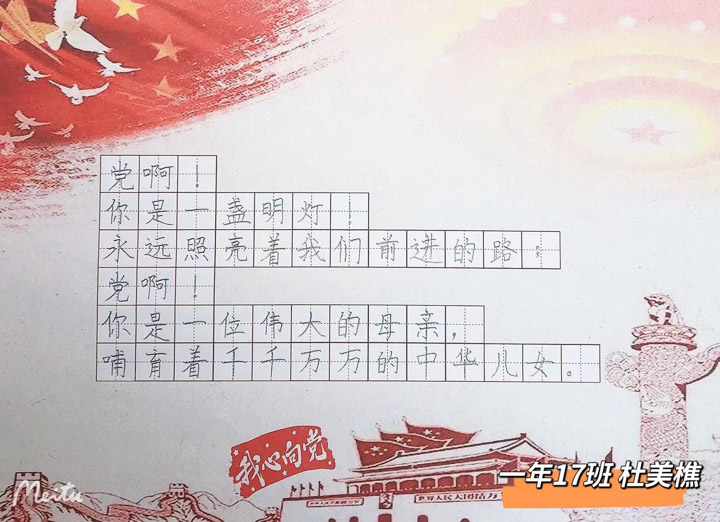 党啊！
你是一盏明灯！
永远照亮着我们前进的路；
党啊！
你是一位伟大的母亲，
哺育着千千万万的中华儿女。
我心向党
世界人民大团结万
一年17班 杜美樵
Meitu